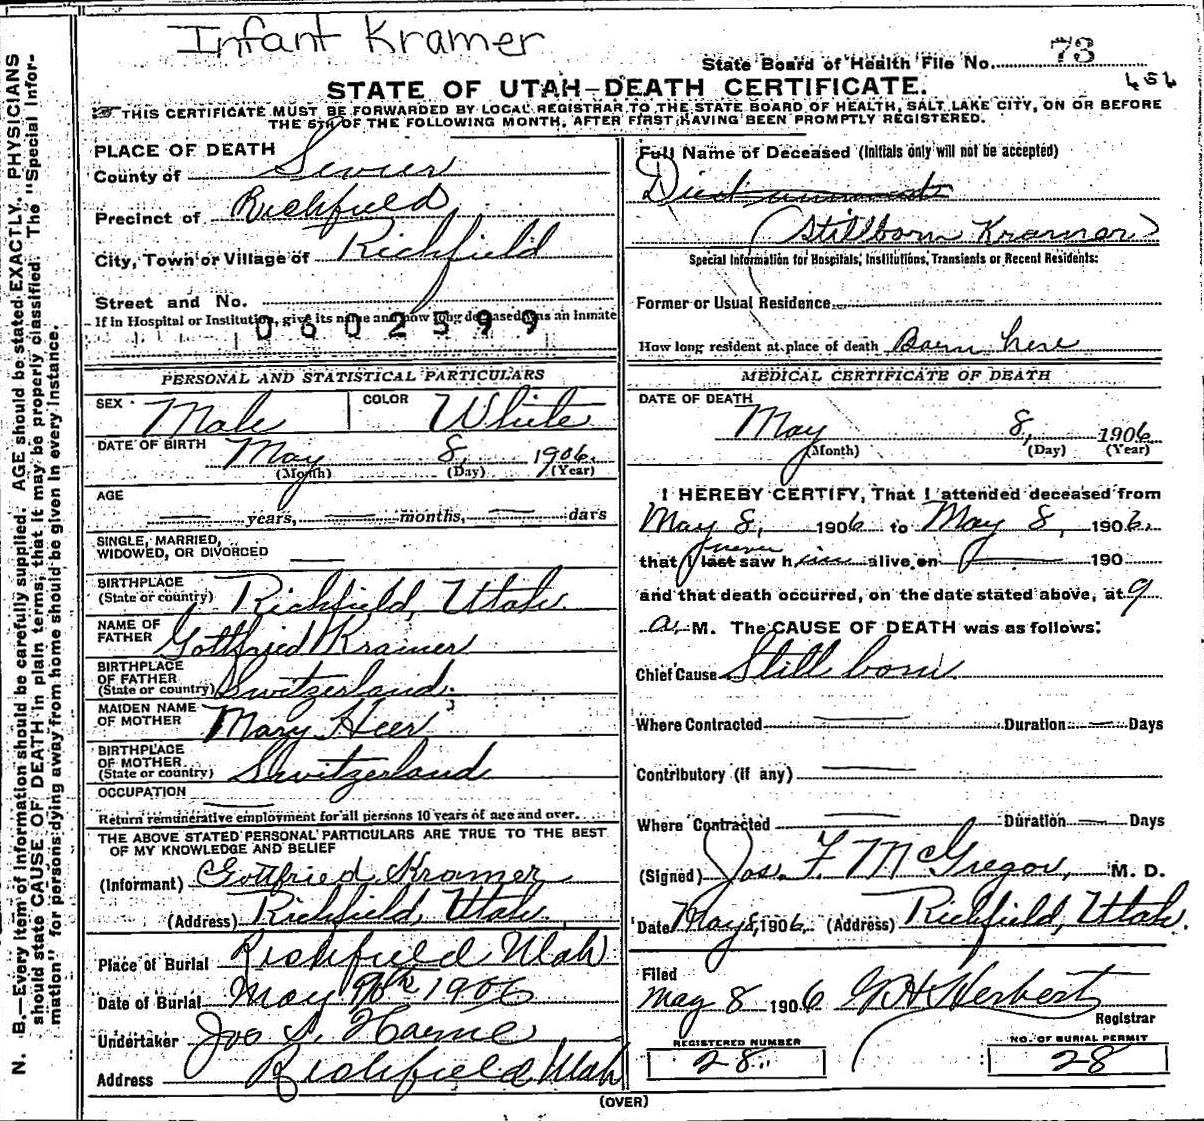 Infant Kramer
State Board of Health File No. 73
STATE OF UTAH—DEATH CERTIFICATE.
THIS CERTIFICATE MUST BE FORWARDED BY LOCAL REGISTRAR TO THE STATE BOARD OF HEALTH, SALT LAKE CITY, ON OR BEFORE
THE 5TH OF THE FOLLOWING MONTH, AFTER FIRST HAVING BEEN PROMPTLY REGISTERED.
N. B.—Every item of information should be carefully supplied. AGE should be stated EXACTLY. PHYSICIANS
should state CAUSE OF DEATH in plain terms, that it may be properly classified. The "Special Infor-
mation" for persons dying away from home should be given in every instance.
PLACE OF DEATH
County of Sevier
Precinct of Richfield
City, Town or Village of Richfield
Street and No.
If in Hospital or Institution, give its name and how long deceased was an inmate
0602599
PERSONAL AND STATISTICAL PARTICULARS
SEX Male COLOR White
DATE OF BIRTH May 8, 1906
(Month) (Day) (Year)
AGE
— years, — months, — days
SINGLE, MARRIED,
WIDOWED, OR DIVORCED —
BIRTHPLACE
(State or country) Richfield, Utah.
NAME OF
FATHER Gottfried Kramer
BIRTHPLACE
OF FATHER
(State or country) Switzerland.
MAIDEN NAME
OF MOTHER Mary Heer
BIRTHPLACE
OF MOTHER
(State or country) Switzerland
OCCUPATION —
Return remunerative employment for all persons 10 years of age and over.
THE ABOVE STATED PERSONAL PARTICULARS ARE TRUE TO THE BEST
OF MY KNOWLEDGE AND BELIEF
(Informant) Gottfried Kramer
(Address) Richfield, Utah.
Place of Burial Richfield Utah
Date of Burial May 9th 1906
Undertaker Joo S. Horne
Address Richfield Utah
Full Name of Deceased (Initials only will not be accepted)
Died
(Stillborn Kramer)
Special Information for Hospitals, Institutions, Transients or Recent Residents:
Former or Usual Residence
How long resident at place of death Born here
MEDICAL CERTIFICATE OF DEATH
DATE OF DEATH
May 8, 1906
(Month) (Day) (Year)
I HEREBY CERTIFY, That I attended deceased from
May 8, 1906 to May 8, 1906.
never
that I last saw him alive on — 190
and that death occurred, on the date stated above, at 9
a. M. The CAUSE OF DEATH was as follows:
Chief Cause Still born
Where Contracted — Duration — Days
Contributory (if any) —
Where Contracted — Duration — Days
(Signed) Jos. F. McGregor, M. D.
Date May 8, 1906. (Address) Richfield, Utah.
Filed
May 8 1906 G. H. Herbert
Registrar
REGISTERED NUMBER
28
NO. OF BURIAL PERMIT
28
(OVER)